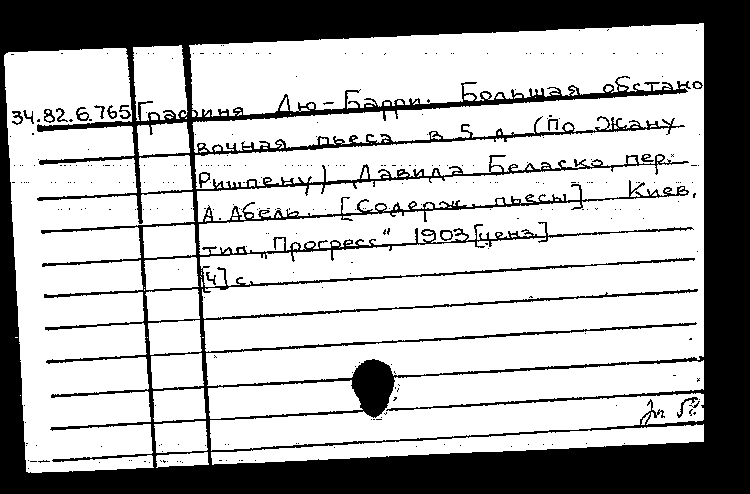 34.82.6.765 Графиня Дю-Барри. Большая обстано
вочная пьеса в 5 д. (По Жану
Ришпену) Давида Беласко, пер.
А. Абель. [Содерж. пьесы] Киев,
тип. „Прогресс“, 1903 [ценз]
[4] с.